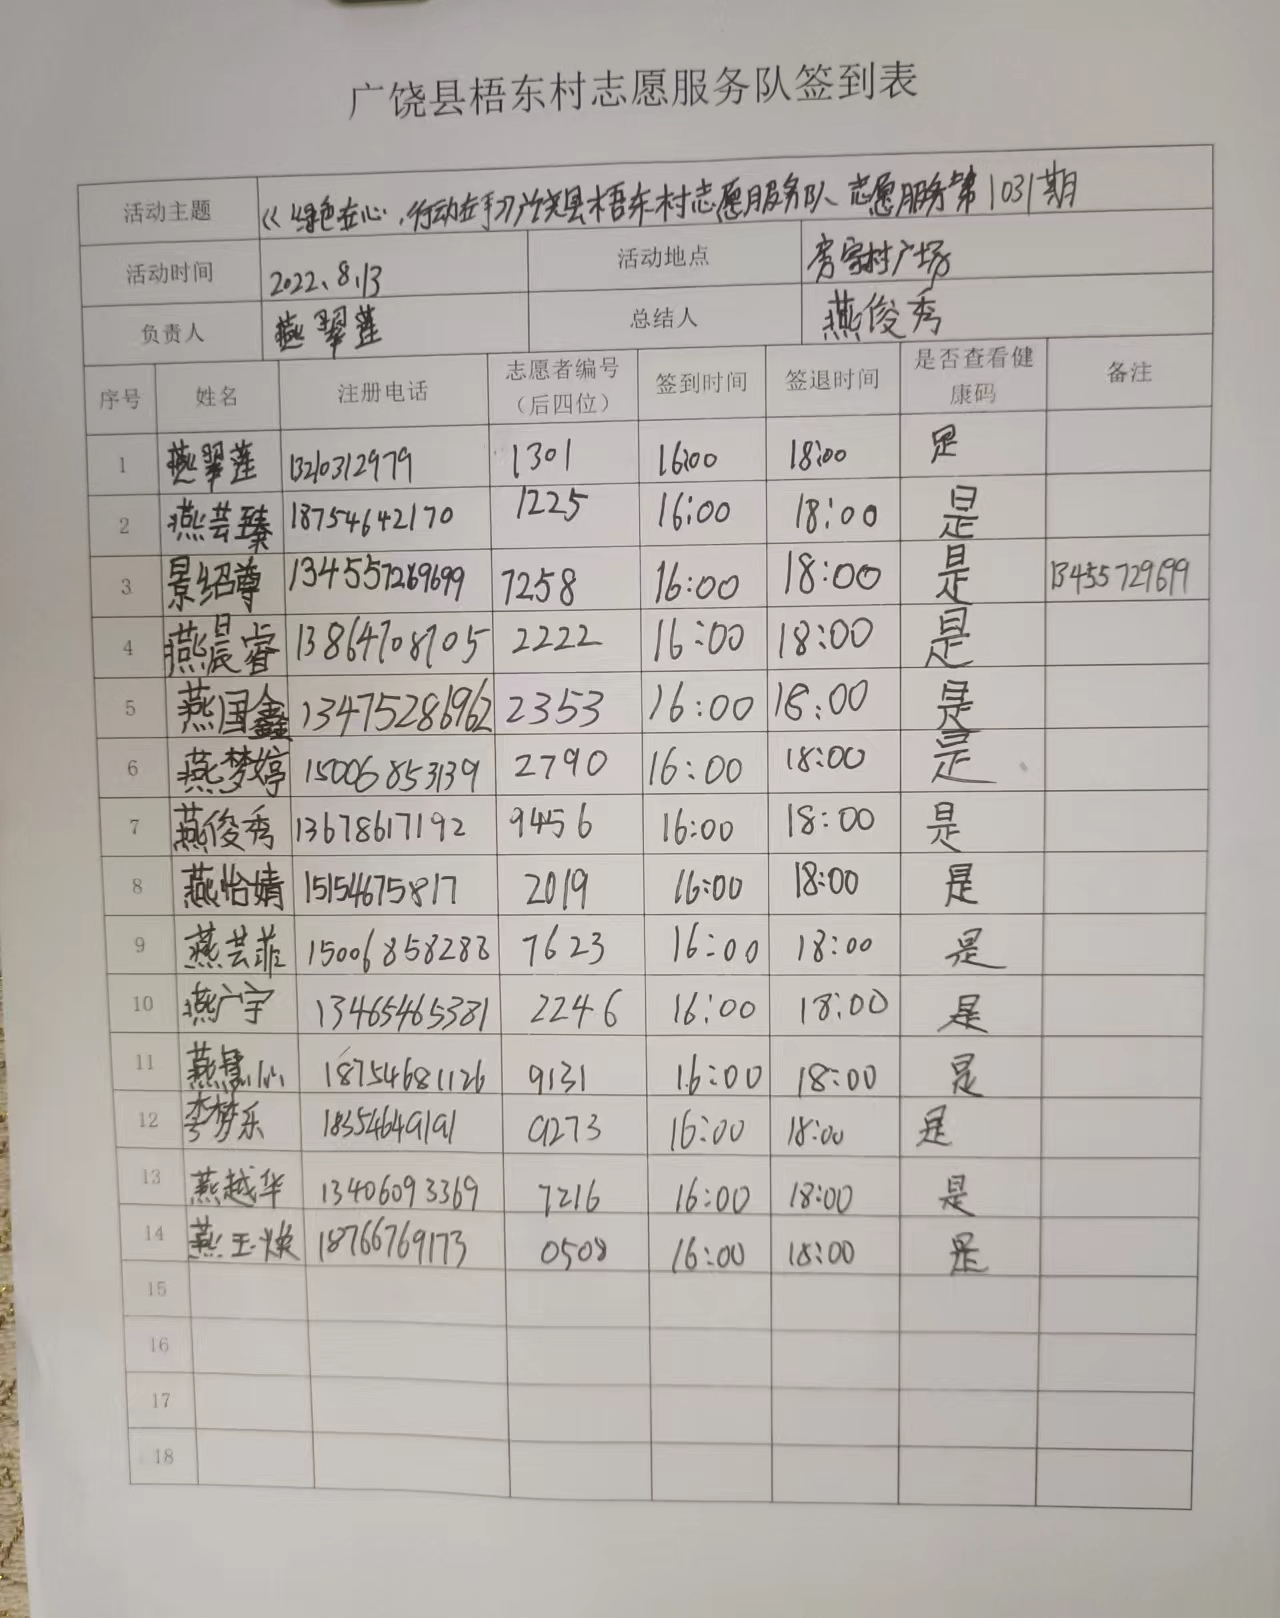 广饶县梧东村志愿服务队签到表
活动主题 《绿色在心,行动在手》广饶县梧东村志愿服务队、志愿服务第1031期
活动时间 2022.8.13 活动地点 房家村广场
负责人 燕翠莲 总结人 燕俊秀
序号 姓名 注册电话 志愿者编号（后四位） 签到时间 签退时间 是否查看健康码 备注
1 燕翠莲 13210312979 1301 16:00 18:00 是
2 燕芸臻 18754642170 1225 16:00 18:00 是
3 景绍尊 7258 16:00 18:00 是 13455729699
4 燕晨睿 13864708705 2222 16:00 18:00 是
5 燕国鑫 13475286962 2353 16:00 18:00 是
6 燕梦婷 15006853139 2790 16:00 18:00 是
7 燕俊秀 13678617192 9456 16:00 18:00 是
8 燕怡婧 15154675817 2019 16:00 18:00 是
9 燕芸菲 15006858288 7623 16:00 18:00 是
10 燕广宇 13465465381 2246 16:00 18:00 是
11 燕 18754681126 9131 16:00 18:00 是
12 李梦乐 18354649191 9273 16:00 18:00 是
13 燕越华 13406093369 7216 16:00 18:00 是
14 燕玉焕 18766769173 0508 16:00 18:00 是
15
16
17
18